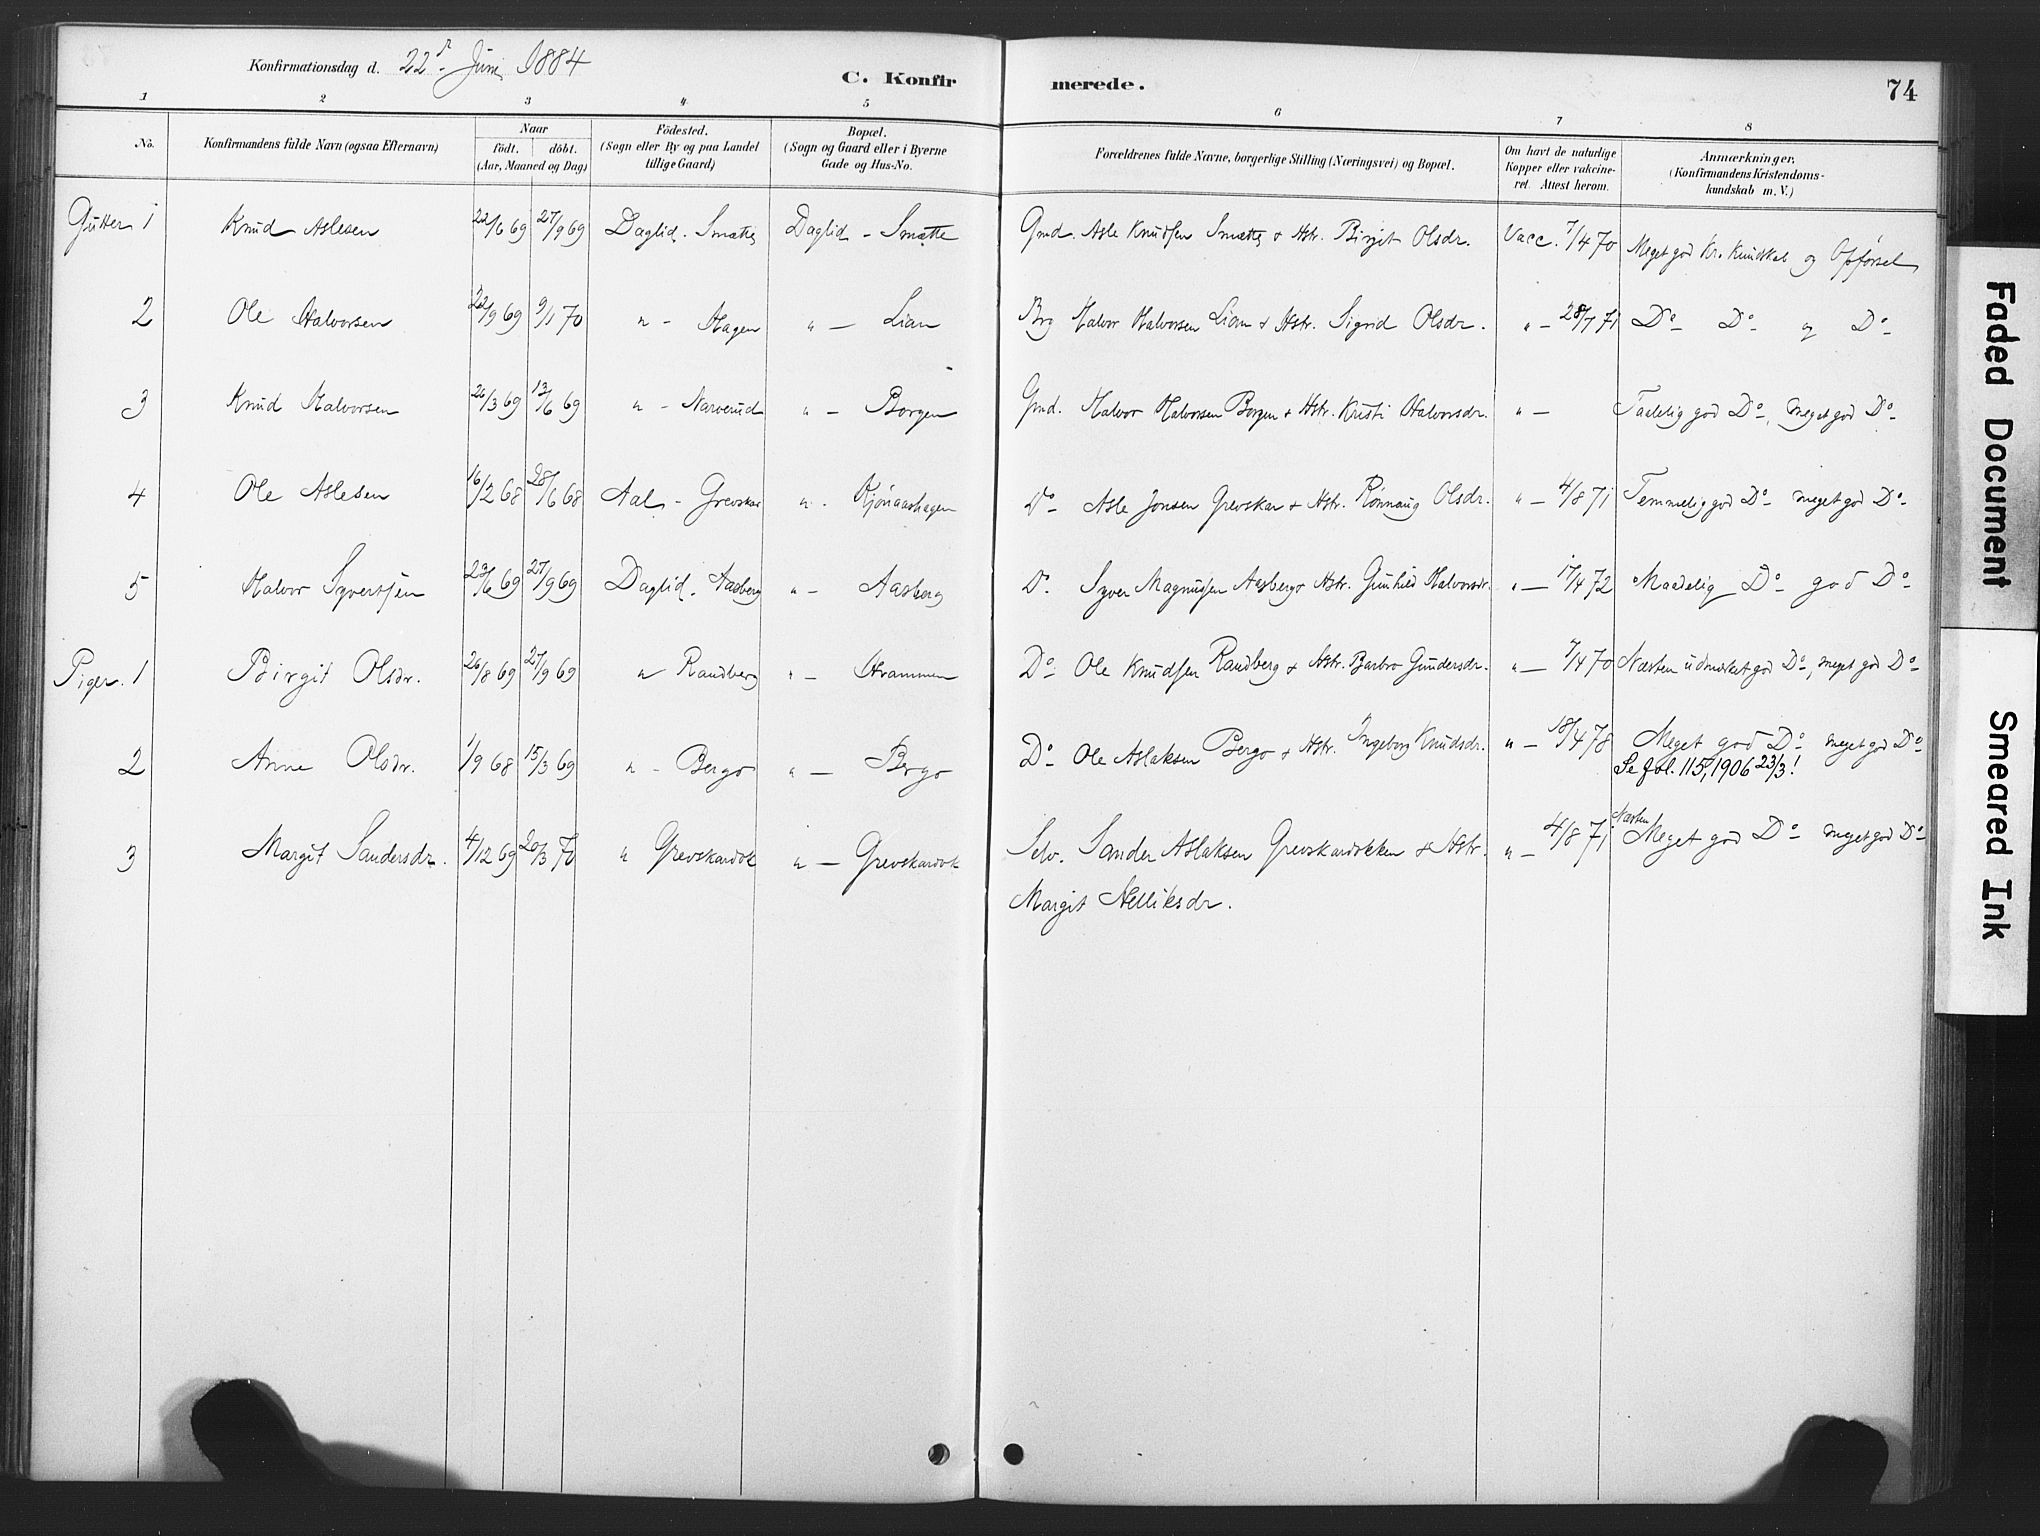 Konfirmationsdag d. 22d. Juni 1884
C. Konfir merede. 74
1 2 3 4 5 6 7 8
No. Konfirmandens fulde Navn (ogsaa Efternavn) Naar födt. döbt. (Aar, Maaned og Dag) Födested. (Sogn eller By og paa Landet tillige Gaard) Bopæl. (Sogn og Gaard eller i Byerne Gade og Hus-No. Forældrenes fulde Navne, borgerlige Stilling (Næringsvei) og Bopæl. Om havt de naturlige Kopper eller vakcineret. Attest herom. Anmærkninger. (Konfirmandens Kristendomskundskab m. V.)
Gutter 1 Knud Aslesen 22/6 69 27/9 69 Daglid. Smætte Daglid - Smætte Gmd. Asle Knudsen Smætte & Hstr. Birgit Olsdr. Vacc. 7/4 70 Meget god Kr. Kundskab og Opførsel
2 Ole Halvorsen 22/9 69 9/1 70 " - Hagen " - Lian Brg Halvor Halvorsen Lian & Hstr. Sigrid Olsdr. " - 28/7 71 Do - Do - og Do -
3 Knud Halvorsen 26/3 69 13/6 69 " - Narverud " - Borgen Gmd. Halvor Halvorsen Borgen & Hstr. Kristi Halvorsdr. " - Taalelig god Do -, meget god Do -
4 Ole Aslesen 16/2 68 28/6 68 Aal - Grevskar " - Kjønaashagen Do - Asle Jonsen Grevskar & Hstr. Rønnaug Olsdr. " - 4/8 71 Temmelig god Do - meget god Do -
5 Halvor Syvertsen 23/6 69 27/9 69 Daglid. Aasberg " - Aasberg Do. Syver Magnussen Aasberg & Hstr. Gunhild Halvorsdr. " - 17/4 72 Maadelig Do - god Do -
Piger. 1 Birgit Olsdr. 26/8 69 27/9 69 " Randberg " - Strammen Do - Ole Knudsen Randberg & Hstr. Barbro Gundersdr. " - 7/4 70 Næsten udmærket god Do -, meget god Do -
2 Anne Olsdr. 1/9 68 15/3 69 " - Bergo " - Bergo Do - Ole Aslaksen Bergo & Hstr. Ingeborg Knudsdr. " - 18/4 78 Meget god Do - meget god Do -
Se fol. 115, 1906 23/3!
3 Margit Sandersdr. 4/12 69 20/3 70 " Grevskardok " - Grevskardok Selv. Sander Aslaksen Grevskardokken & Hstr. " - 4/8 71 Næsten Meget god Do - meget god Do -
Margit Nelliksdr.
Faded Document
Smeared Ink